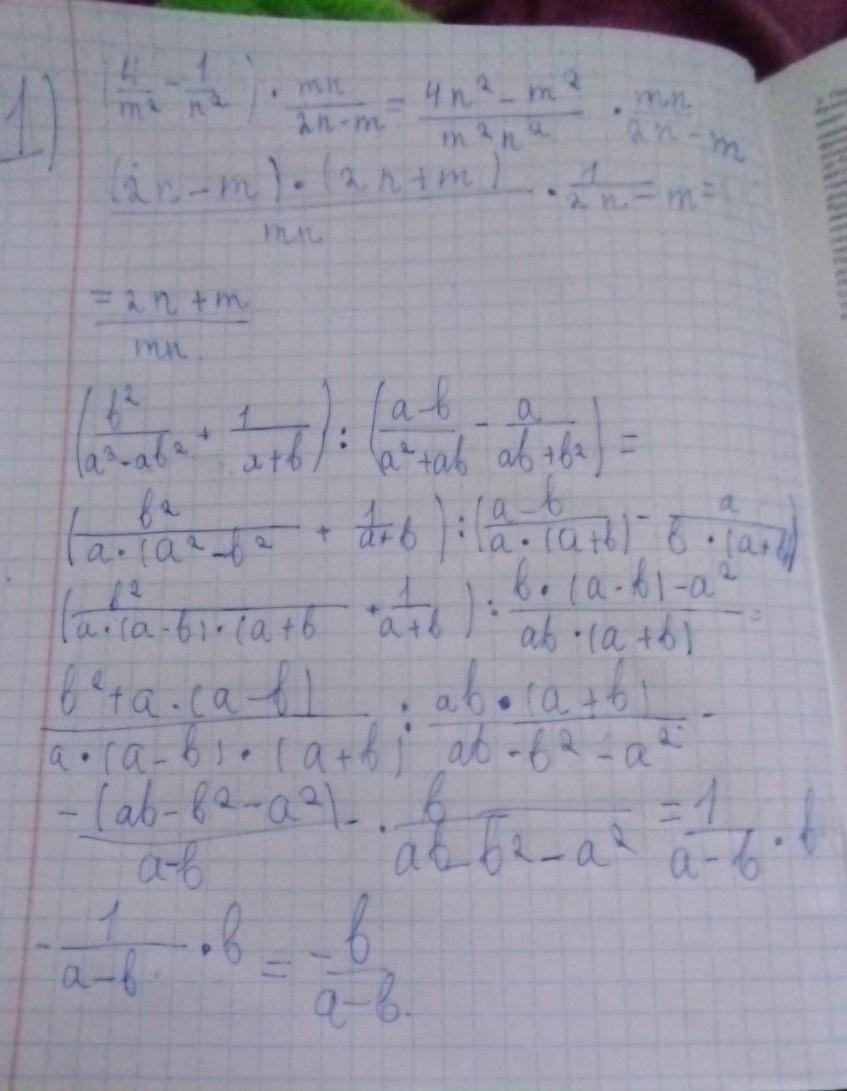 1) (4/m² - 1/n²) · mn/2n-m = 4n² - m²/m²n² · mn/2n-m
(2n-m)·(2n+m)/mn · 1/2n-m =
= 2n+m/mn
(b²/a³-ab² + 1/a+b) : (a-b/a²+ab - a/ab+b²) =
(b²/a·(a²-b² + 1/a+b) : (a-b/a·(a+b) - a/b·(a+b))
(b²/a·(a-b)·(a+b + 1/a+b) : b·(a-b)-a²/ab·(a+b) =
b²+a·(a-b)/a·(a-b)·(a+b) : ab·(a+b)/ab-b²-a² -
-(ab-b²-a²)/a-b · b/ab-b²-a² = 1/a-b · b
-1/a-b · b = -b/a-b.